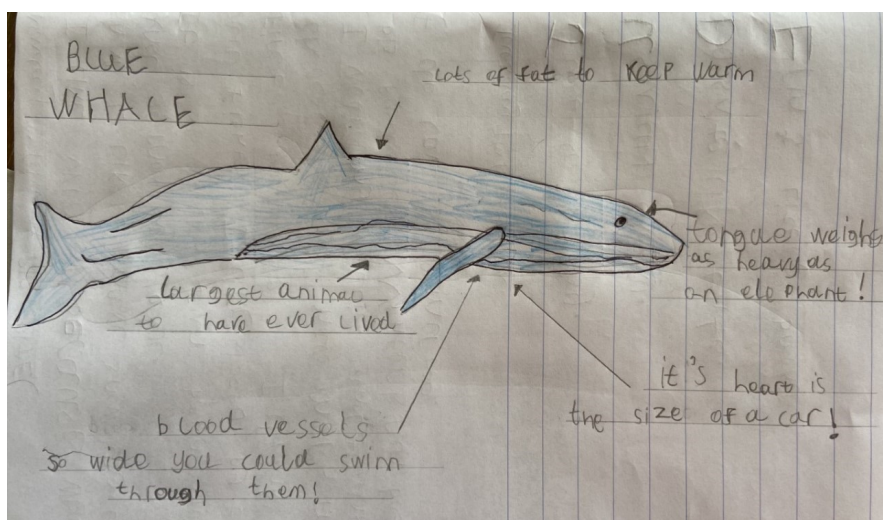 BLUE
WHALE
Lots of fat to keep warm
tongue weighs
as heavy as
an elephant!
largest animal
to have ever lived
it's heart is
the size of a car!
blood vessels
so wide you could swim
through them!